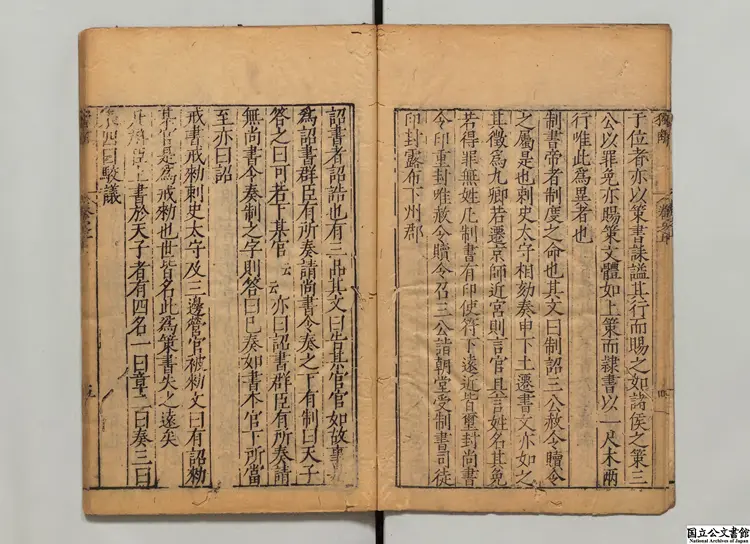 于位者亦以策書誄謚其行而賜之如諸侯之策三
公以罪免亦賜策文體如上策而隷書以一尺木兩
行唯此爲異者也
制書帝者制度之命也其文曰制詔三公赦令贖令
之屬是也刺史太守相劾奏申下土遷書文亦如之
其徵爲九卿若遷京師近宮則言官具言姓名其免
若得罪無姓凡制書有印使符下遠近皆璽封尚書
令印重封唯赦令贖令召三公詣朝堂受制書司徒
印封露布下州郡
詔書者詔誥也有三品其文曰告某官官如故事
爲詔書群臣有所奏請尚書令奏之下有制曰天子
答之曰可若下某官云云亦曰詔書群臣有所奏請
無尚書令奏制之字則答曰已奏如書本官下所當
至亦曰詔
戒書戒勑刺史太守及三邊營官被勑文曰有詔勑
某官是爲戒勑也世皆名此爲策書失之遠矣
凡群臣上書於天子者有四名一曰章二曰奏三曰
表四曰駮議
国立公文書館
National Archives of Japan